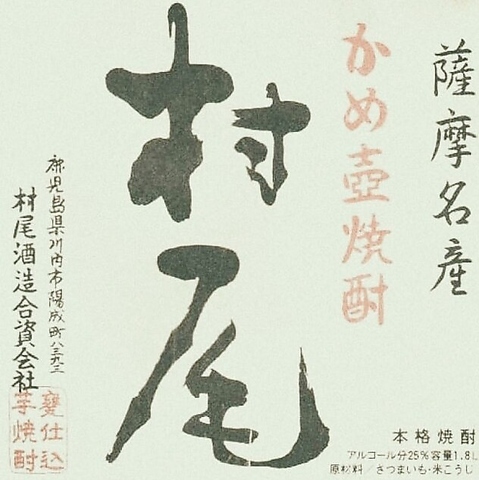 薩摩名産
かめ壺焼酎
村尾
鹿児島県川内市陽成町八三九三
村尾酒造合資会社
甕仕込
芋焼酎
本格焼酎
アルコール分25%容量1.8L
原材料／さつまいも・米こうじ